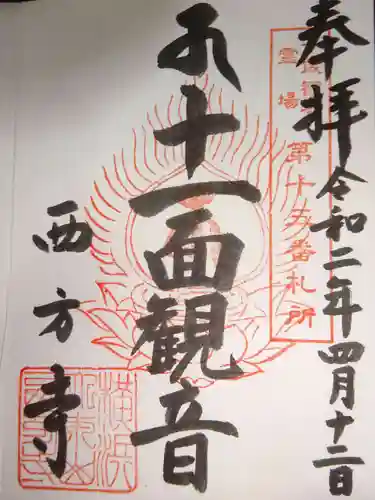 奉拝 令和二年四月十二日
霊場 第十五番札所
十一面観音
西方寺
横浜